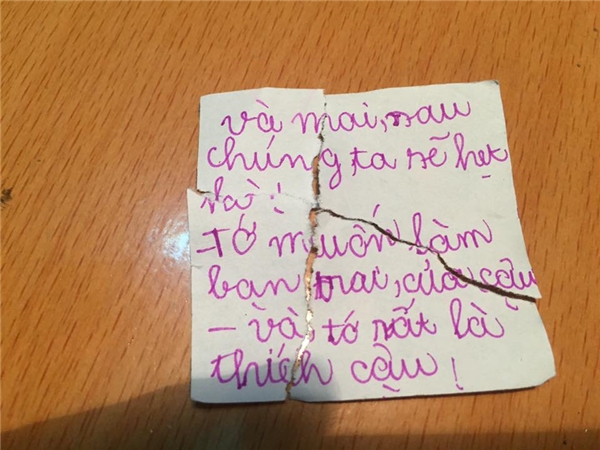 và mai, sau
chúng ta sẽ hẹt
hạ!
-Tớ muốn làm
bạn trai, của cậu
- và tớ rất là
thích cậu!